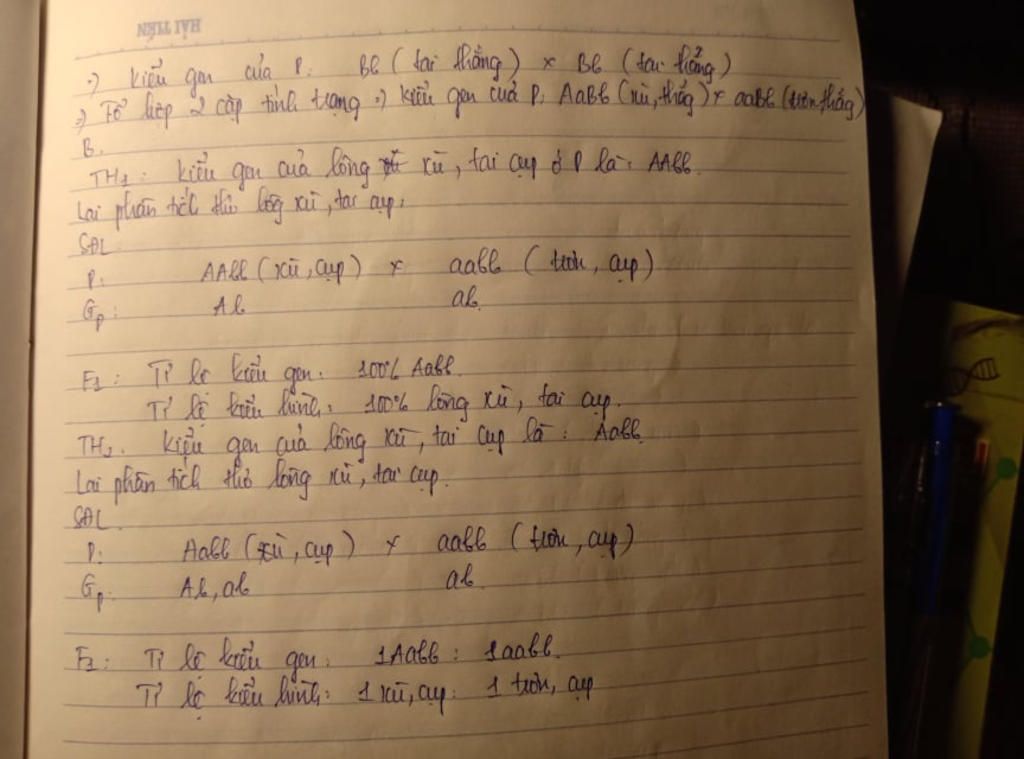 HẢI TIẾN
=) Kiểu gen của P: Bb (tai thẳng) x Bb (tai thẳng)
=) Tổ hợp 2 cặp tính trạng =) kiểu gen của P: AaBb (xù, thẳg) x aaBb (trơn, thẳg)
B.
TH1: Kiểu gen của lông xù, tai cụp ở P là: AAbb.
Lai phân tích thỏ lôg xù, tai cụp:
SĐL:
P: AAbb (xù, cụp) x aabb (trơn, cụp)
Gp: Ab ab
F1: Tỉ lệ kiểu gen: 100% Aabb.
Tỉ lệ kiểu hình: 100% lông xù, tai cụp.
TH2: Kiểu gen của lông xù, tai cụp là: Aabb
Lai phân tích thỏ lông xù, tai cụp.
SĐL:
P: Aabb (xù, cụp) x aabb (trơn, cụp)
Gp: Ab, ab ab
F1: Tỉ lệ kiểu gen: 1Aabb : 1aabb.
Tỉ lệ kiểu hình: 1 xù, cụp: 1 trơn, cụp